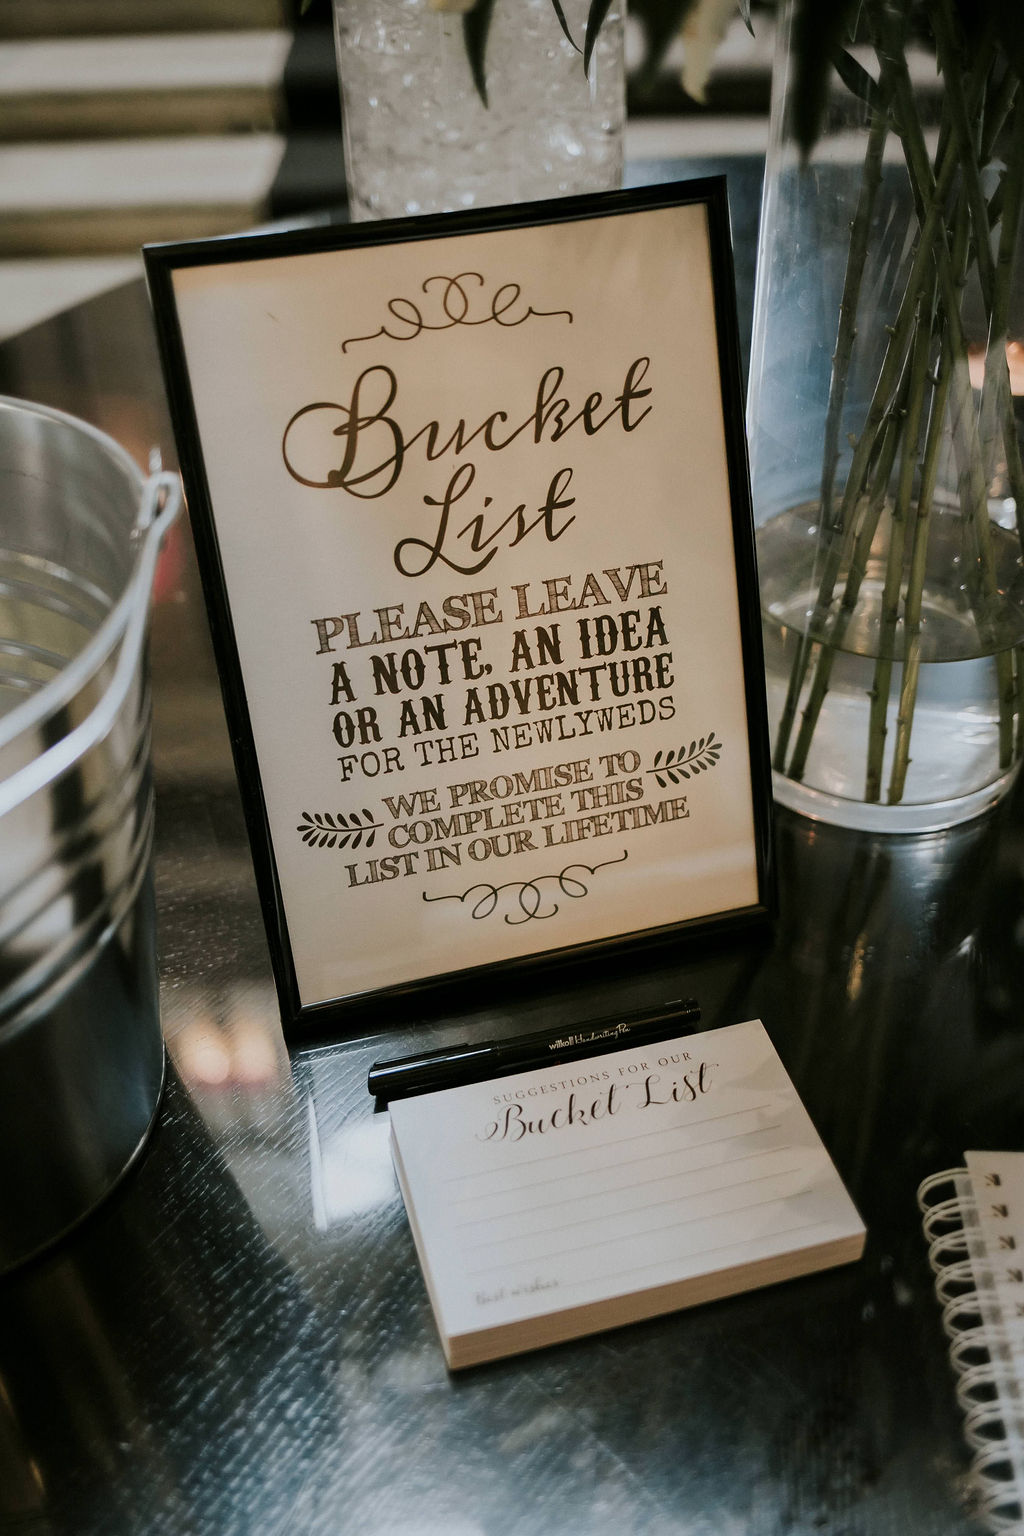 Bucket
List
PLEASE LEAVE
A NOTE, AN IDEA
OR AN ADVENTURE
FOR THE NEWLYWEDS
WE PROMISE TO
COMPLETE THIS
LIST IN OUR LIFETIME
willkoll Handwriting Pen
SUGGESTIONS FOR OUR
Bucket List
Best wishes